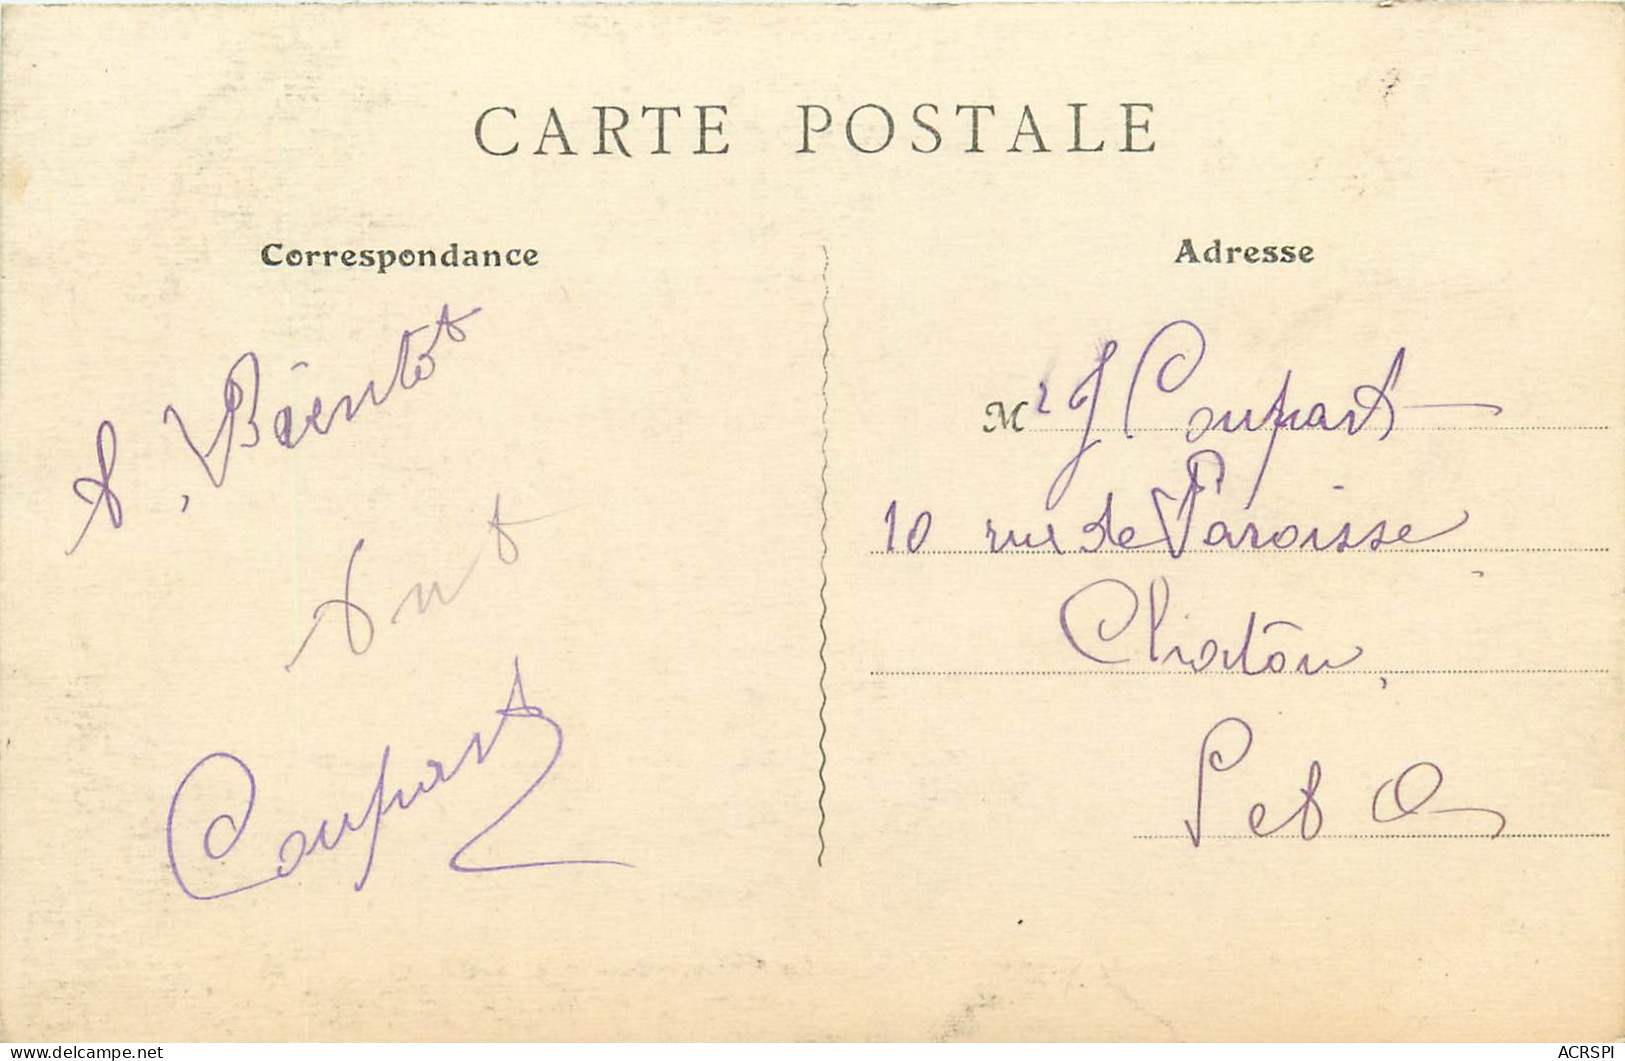 CARTE POSTALE
Correspondance
A. Bientot
Coupart
Adresse
Mr J Coupart
10 rue de Paroisse
Chatou,
S et O
delcampe.net
ACRSPI